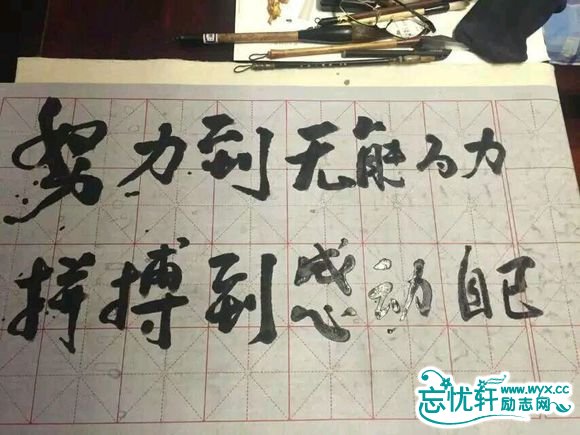 努力到无能为力
拼搏到感动自己
忘忧轩 www.wyx.cc
励志网